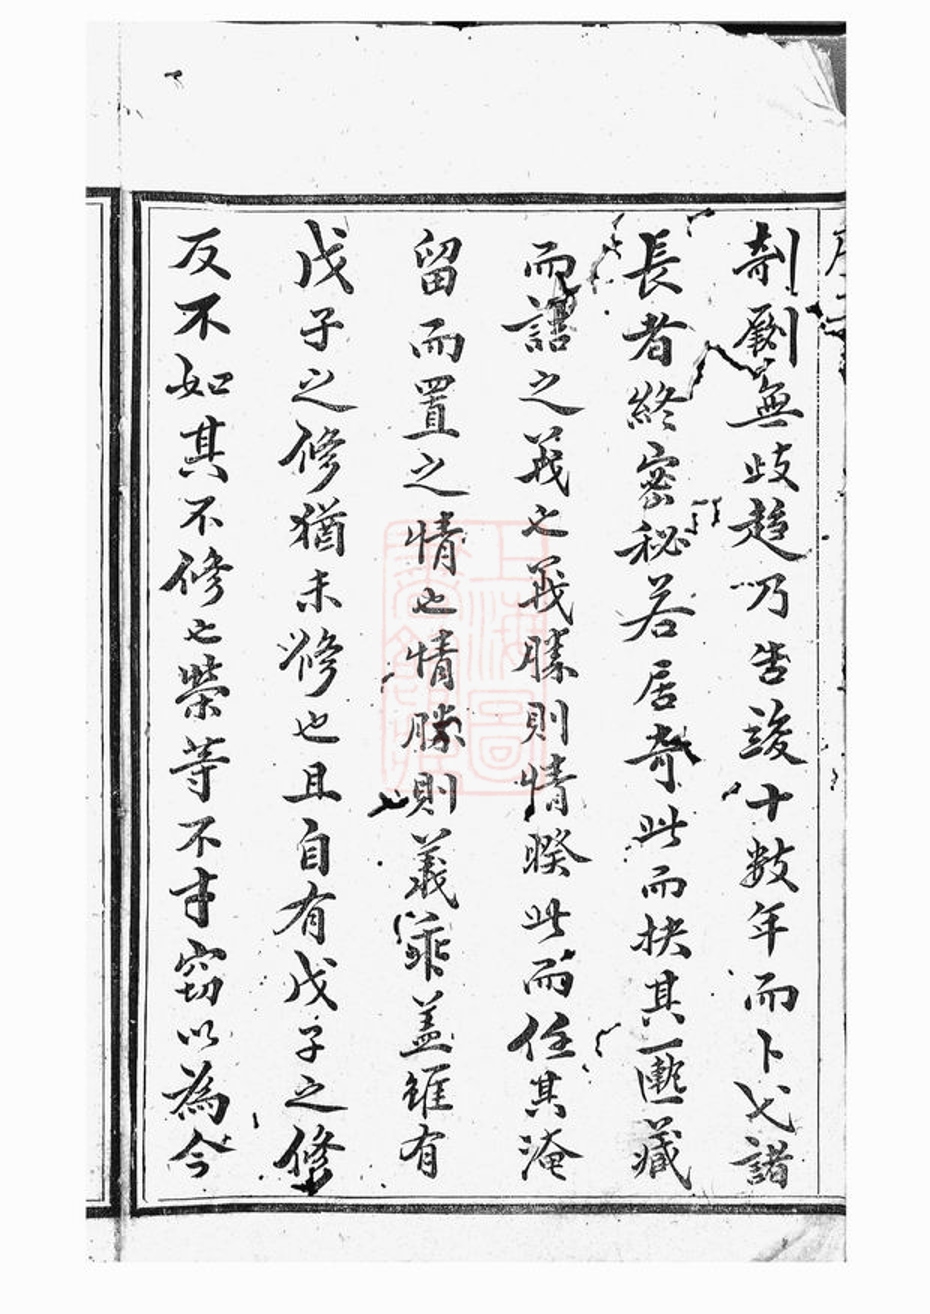 剞劂無歧趨乃告竣十數年而卜弋諸
長者終密秘若居奇此而抉其一匭藏
而話之義也義勝則情睽此而任其淹
留而置之情也情勝則義乖盖雖有
戊子之修猶未修也且自有戊子之修
反不如其不修也榮等不才竊以為今
上海圖書館藏